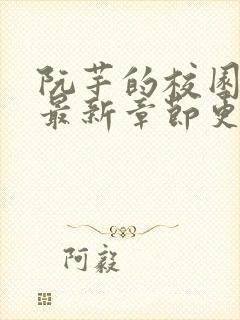 阮芋的校园
最新章节更
阿毅